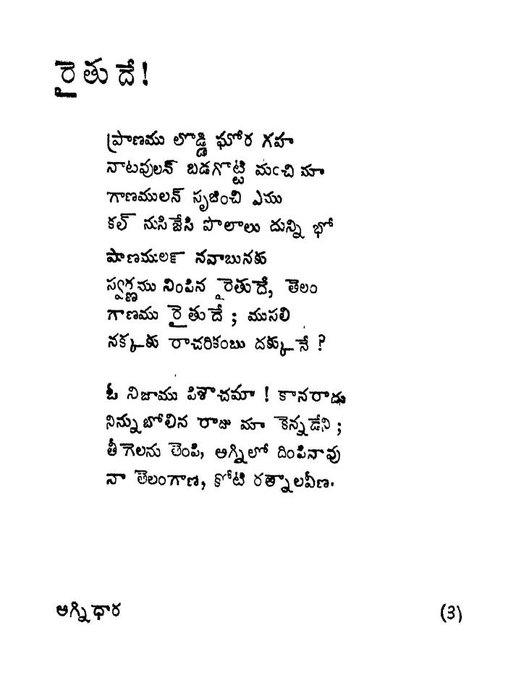 రైతుదే!
ప్రాణము లొడ్డి ఘోర గహ
నాటవులన్ బడగొట్టి మంచి మా
గాణములన్ సృజించి ఎము
కల్ నుసిజేసి పొలాలు దున్ని భో
షాణములక్ నవాబునకు
స్వర్ణము నింపిన రైతుదే, తెలం
గాణము రైతుదే ; ముసలి
నక్కకు రాచరికంబు దక్కునే ?
ఓ నిజాము పిశాచమా ! కానరాడు
నిన్నుబోలిన రాజు మా కెన్నడేని ;
తీగెలను తెంపి, అగ్నిలో దింపినావు
నా తెలంగాణ, కోటి రత్నాలవీణ.
అగ్నిధార
(3)